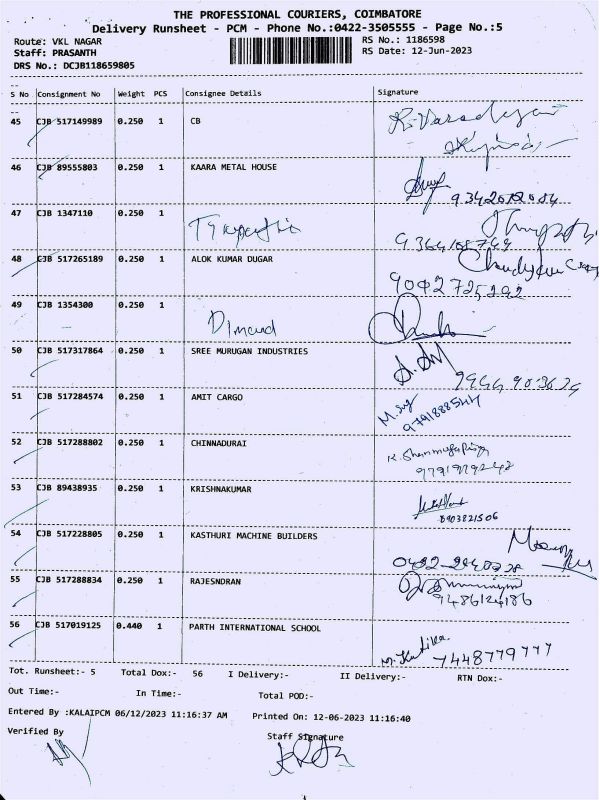 THE PROFESSIONAL COURIERS, COIMBATORE
Delivery Runsheet - PCM - Phone No.:0422-3505555 - Page No.:5
Route: VKL NAGAR
RS No.: 1186598
Staff: PRASANTH
RS Date: 12-Jun-2023
DRS No.: DCJB118659805
S No Consignment No Weight PCS Consignee Details Signature
45 CJB 517149989 0.250 1 CB
46 CJB 89555803 0.250 1 KAARA METAL HOUSE
47 CJB 1347110 0.250 1
48 CJB 517265189 0.250 1 ALOK KUMAR DUGAR
49 CJB 1354300 0.250 1
50 CJB 517317864 0.250 1 SREE MURUGAN INDUSTRIES
51 CJB 517284574 0.250 1 AMIT CARGO
52 CJB 517288802 0.250 1 CHINNADURAI
53 CJB 89438935 0.250 1 KRISHNAKUMAR
8903821506
54 CJB 517228805 0.250 1 KASTHURI MACHINE BUILDERS
55 CJB 517288834 0.250 1 RAJESNDRAN
9486124186
56 CJB 517019125 0.440 1 PARTH INTERNATIONAL SCHOOL
7448779777
Tot. Runsheet:- 5 Total Dox:- 56 I Delivery:- II Delivery:- RTN Dox:-
Out Time:- In Time:- Total POD:-
Entered By :KALAIPCM 06/12/2023 11:16:37 AM Printed On: 12-06-2023 11:16:40
Verified By
Staff Signature